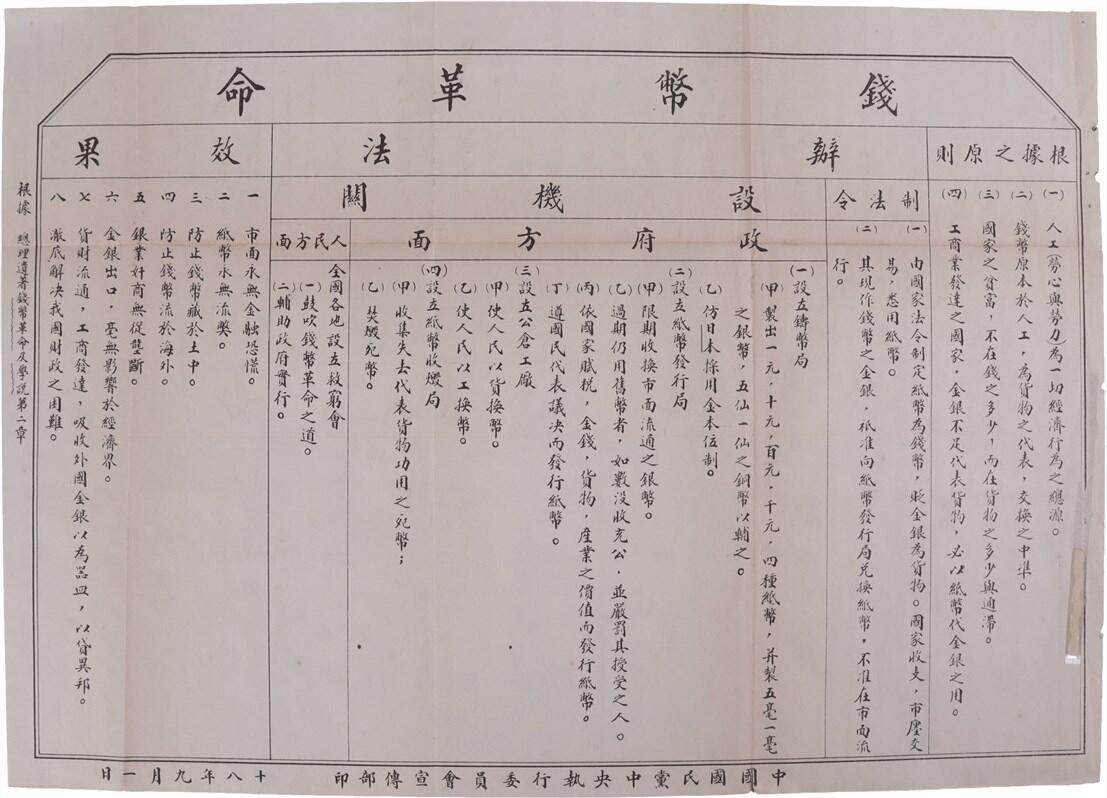 錢幣革命
根據之原則
(一)人工(勞心與勞力)為一切經濟行為之總源。
(二)錢幣原本於人工,為貨物之代表,交換之中準。
(三)國家之貧富,不在錢之多少,而在貨物之多少與通滯。
(四)工商業發達之國家,金銀不足代表貨物,必以紙幣代金銀之用。
辦法
制法令
(一)由國家法令制定紙幣為錢幣,貶金銀為貨物。國家收支,市廛交
易,悉用紙幣。
(二)其現作錢幣之金銀,祇准向紙幣發行局兌換紙幣,不准在市面流
行。
設機關
政府方面
(一)設立鑄幣局
(甲)製出一元,十元,百元,千元,四種紙幣,并製五毫一毫
之銀幣,五仙一仙之銅幣以輔之。
(乙)仿日本採用金本位制。
(二)設立紙幣發行局
(甲)限期收換市面流通之銀幣。
(乙)過期仍用舊幣者,如數沒收充公,並嚴罰其授受之人。
(丙)依國家賦稅,金錢,貨物,產業之價值而發行紙幣。
(丁)遵國民代表議決而發行紙幣。
(三)設立公倉工廠
(甲)使人民以貨換幣。
(乙)使人民以工換幣。
(四)設立紙幣收燬局
(甲)收集失去代表貨物功用之死幣;
(乙)焚燬死幣。
人民方面
全國各地設立救窮會
(一)鼓吹錢幣革命之道。
(二)輔助政府實行。
效果
一 市面永無金融恐慌。
二 紙幣永無流獘。
三 防止錢幣藏於土中。
四 防止錢幣流於海外。
五 銀業奸商無從壟斷。
六 金銀出口,毫無影響於經濟界。
七 貨財流通,工商發達,吸收外國金銀以為器皿,以貸異邦。
八 澈底解決我國財政之困難。
根據 總理遺著錢幣革命及學說第二章
中國國民黨中央執行委員會宣傳部印
十八年九月一日